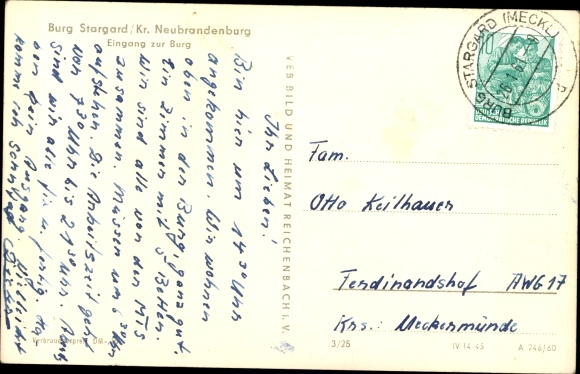 Burg Stargard/Kr. Neubrandenburg
Eingang zur Burg
Ihr Lieben!
Bin hier um 14 30 Uhr
angekommen. Wir wohnen
oben in der Burg, ganz gut.
Ein Zimmer mit 5 Betten.
Wir sind alle von der MTS
zusammen. Müssen um 6 30 Uhr
aufstehen. Die Arbeitszeit geht
von 7 30 Uhr bis 21 30 Uhr. Dann
sind wir aber für u. fertig. da
den kein Ausgang. Vielleicht
komme ich Sonntag
VEB BILD UND HEIMAT REICHENBACH I. V.
BURG STARGARD (MECKL)
10
DEUTSCHE
DEMOKRATISCHE REPUBLIK
Fam.
Otto Keilhauer
Ferdinandshof AWG 17
Krs.: Ueckermünde
Verbraucherpreis DM
3/25 IV-14-45 A 246/60